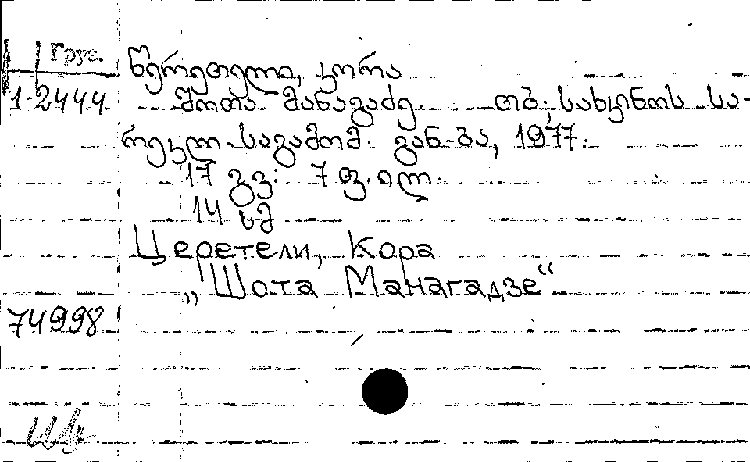 Груз.
წერეთელი, კორა
1-2444 შოთა მანაგაძე. თბ., სახკინოს სა-
რეკლ. საგამომ. გან-ბა, 1977.
17 გვ: 7 ფ. ილ.
14 სმ
Церетели, Кора
„Шота Манагадзе“
74998